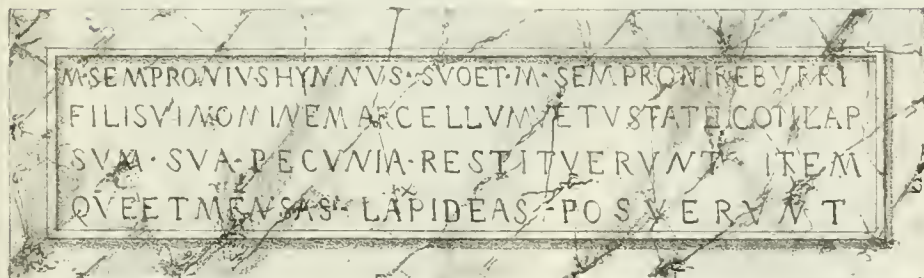 M·SEMPRONIVSHYMNVS·SVOET·M·SEMPRONIREBVRRI
FILISVINOMINEMARCELLVMVETVSTATECONLAP
SVM·SVA·PECVNIA·RESTITVERVNT ITEM
QVEETMENSAS·LAPIDEAS·POSVERVNT